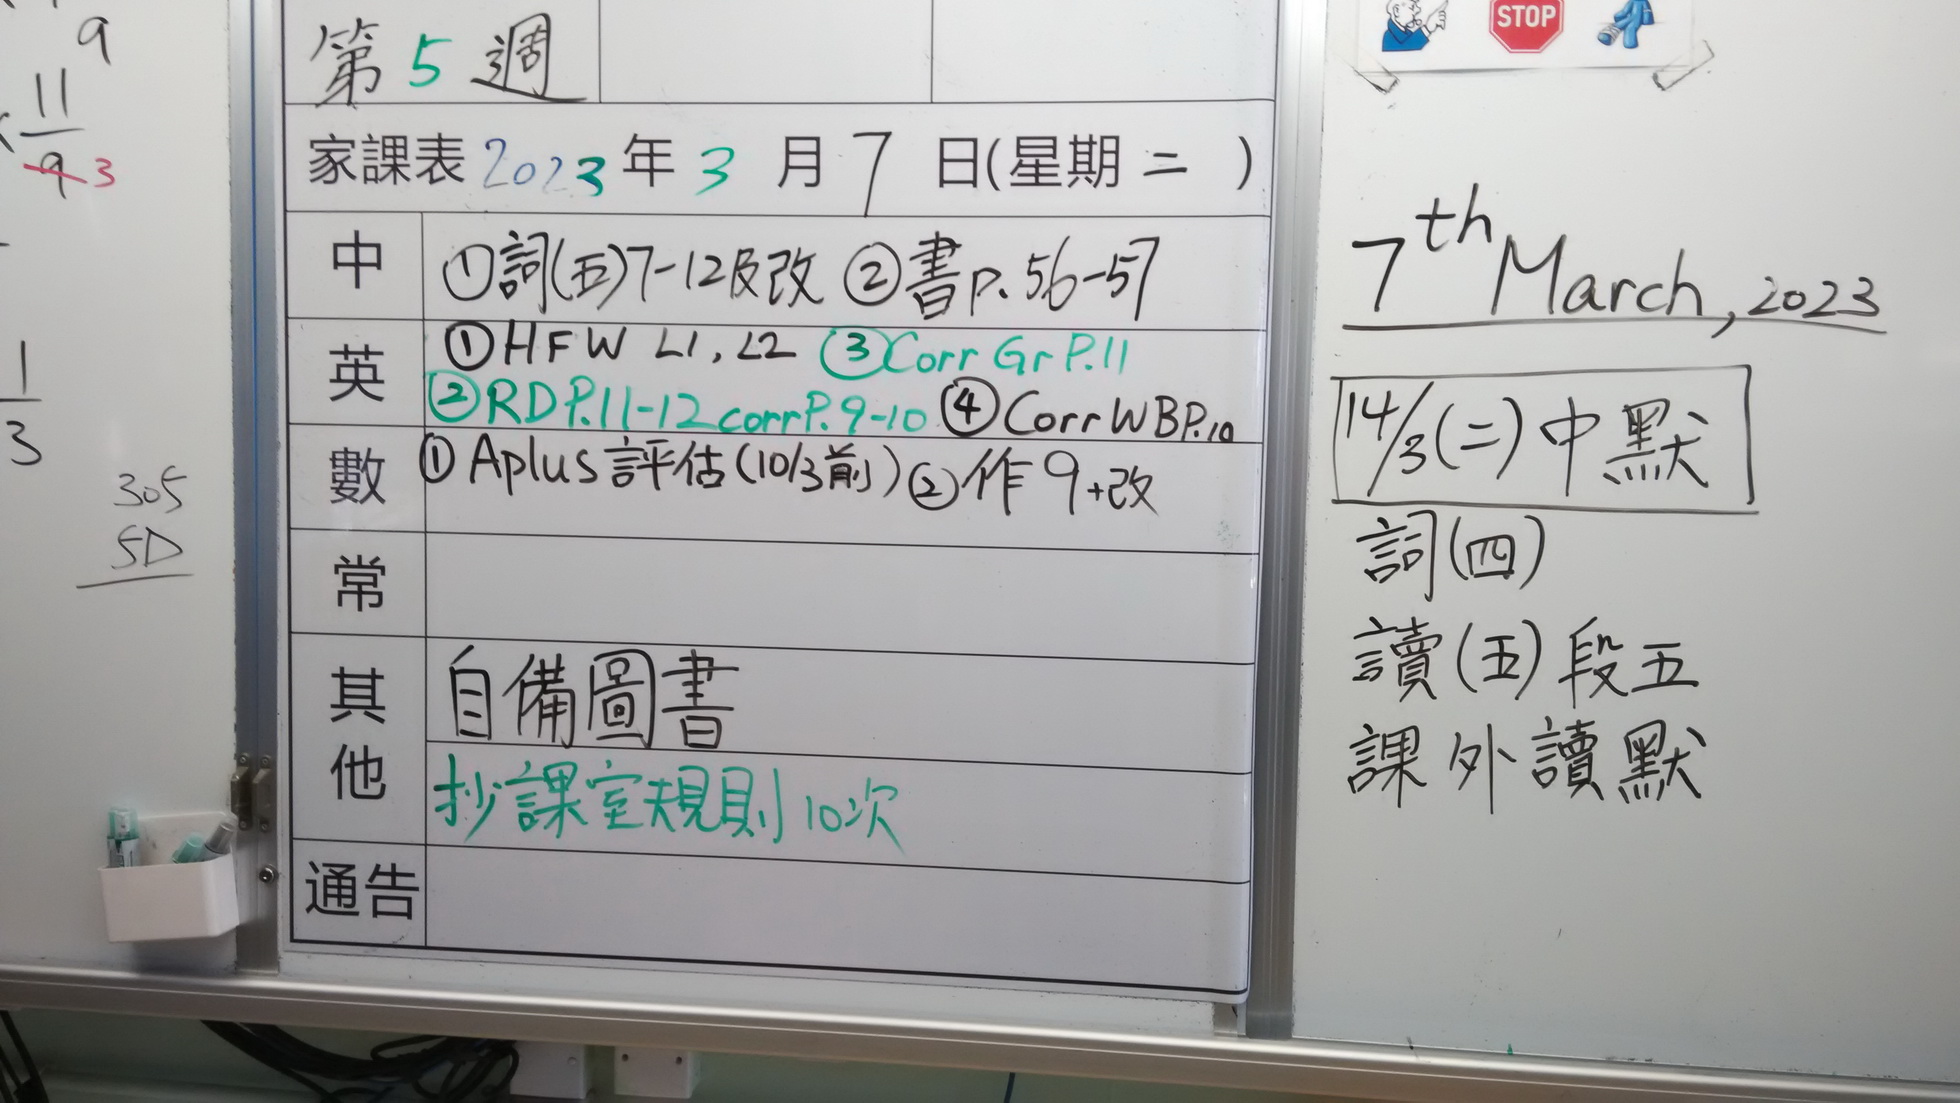 9
11
9 3
1
3
305
5D
第5週
家課表 2023年3月7日(星期二)
中
①詞(五)7-12及改 ②書p.56-57
英
①HFW L1, L2 ③Corr Gr P.11
②RD P.11-12 corr P.9-10 ④Corr WB P.10
數
①Aplus評估(10/3前) ②作9+改
常
其他
自備圖書
抄課室規則10次
通告
STOP
7th March, 2023
14/3(二)中默
詞(四)
讀(五)段五
課外讀默